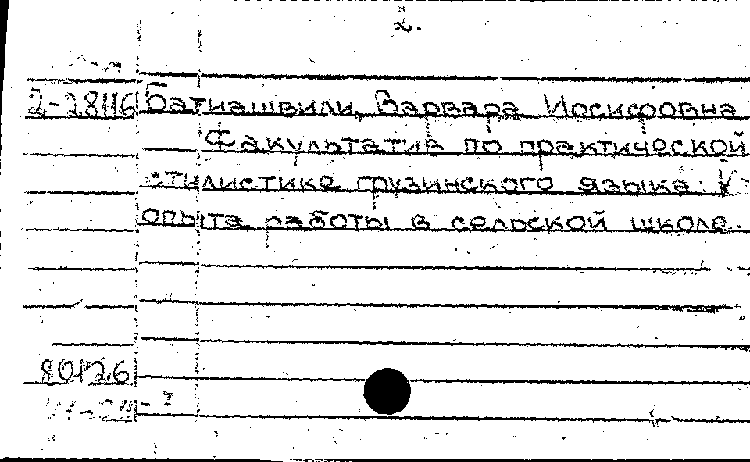 2.
2-28116 Батиашвили, Варвара Иосифовна
Факультатив по практической
стилистике грузинского языка:
опыта работы в сельской школе.
80126